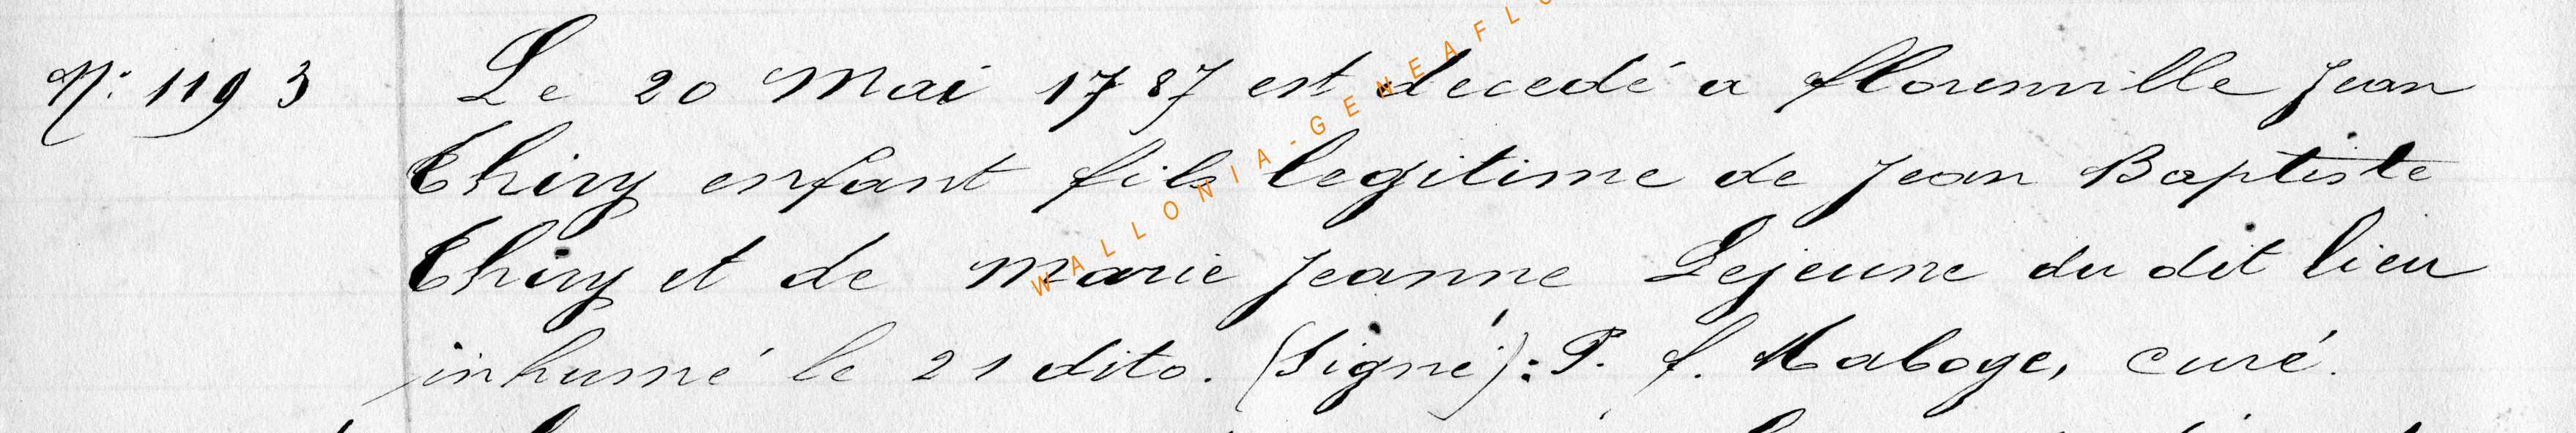 N° 1193 Le 20 Mai 1787 est decedé a florenville Jean
Thiry enfant fils legitime de Jean Baptiste
Thiry et de marie Jeanne Lejeune du dit lieu
inhumé le 21 dito. (Signé): P. f. Maboge, curé.
WALLONIA-GENEAFL